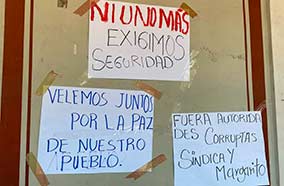 NI UNO MAS
EXIGIMOS
SEGURIDAD
VELEMOS JUNTOS
POR LA PAZ
DE NUESTRO
PUEBLO.
FUERA AUTORIDA
DES CORRUPTAS
SINDICA Y
Margarito